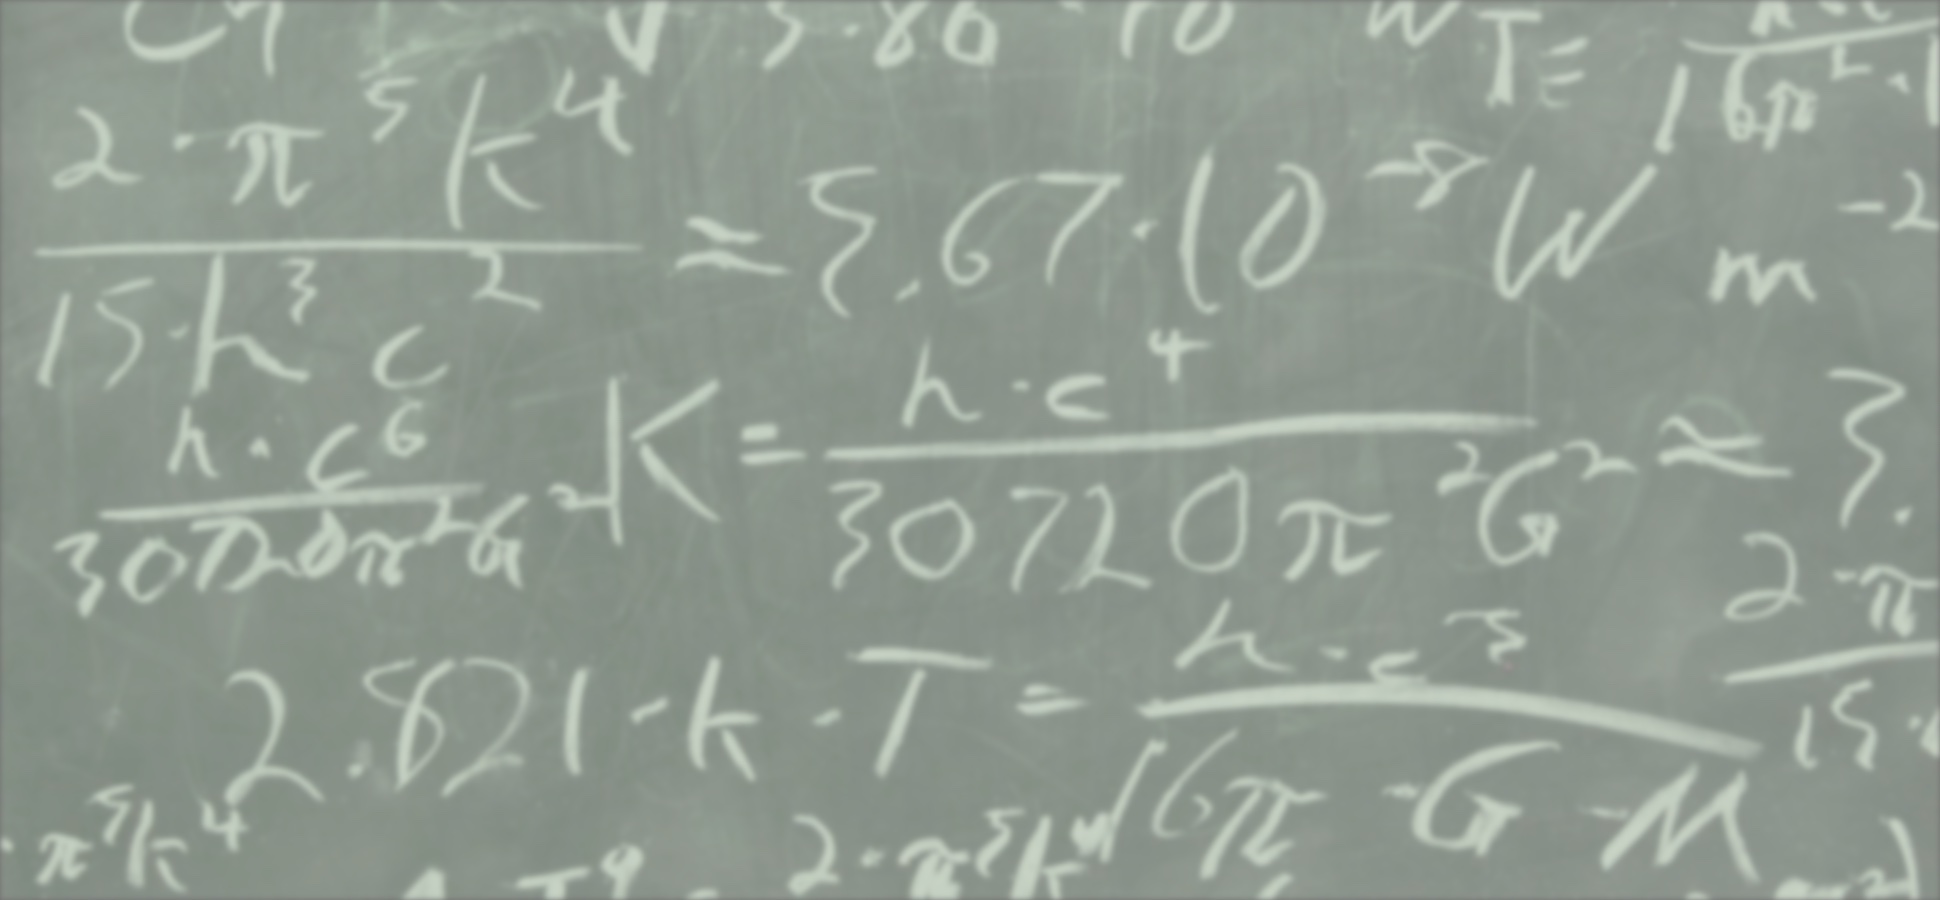 3.86 · 10 W T=
2 · π⁵ k⁴ / 15 · h³ c² ≈ 5.67 · 10⁻⁸ W m⁻²
h · c⁶ / 30720π²G² K = h · c⁴ / 30720π²G² ≈ 3.
2 · π / 15 ·
2.821 · k · T = h · c³ / 16π · G · M
· π⁵k⁴ T⁴ = 2 · π⁵k⁴